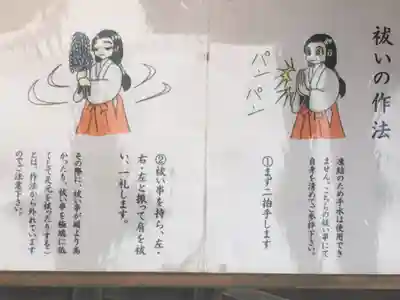 祓いの作法
凍結のため手水は使用でき
ません。こちらの祓い串にて
自身を清めてご参拝下さい。
パン
パン
①まず二拍手します
②祓い串を持ち、左・
右・左と振って肩を祓
い、一礼します。
その際に、祓い串が頭より高
かったり、祓い串を極端に低
くして足元を祓ったりするこ
とは、作法から外れています
のでご注意下さい。